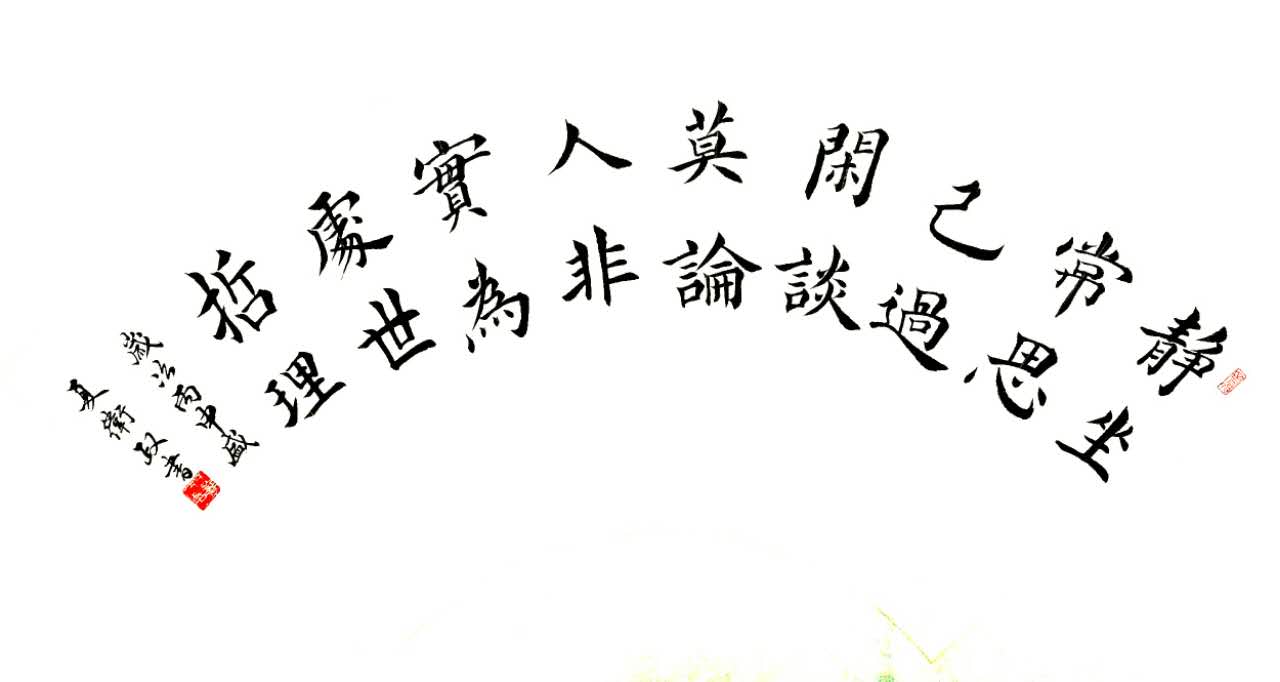 靜坐
常思
己過
閑談
莫論
人非
實為
處世
哲理
歲次丙申盛
夏衛書